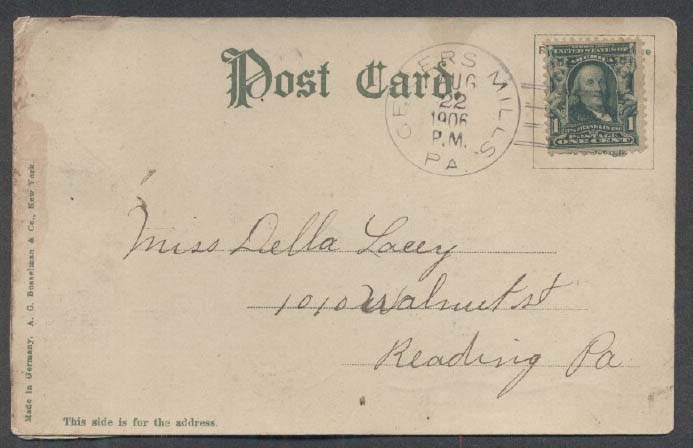 Post Card.
AUG
22
1906
P.M.
MILLS
PA.
UNITED STATES OF
AMERICA
1 1
POSTAGE
ONE CENT
Miss Della Lacey
1010 Walnut st
Reading Pa
Made in Germany, A. C. Bosselman & Co., New York.
This side is for the address.